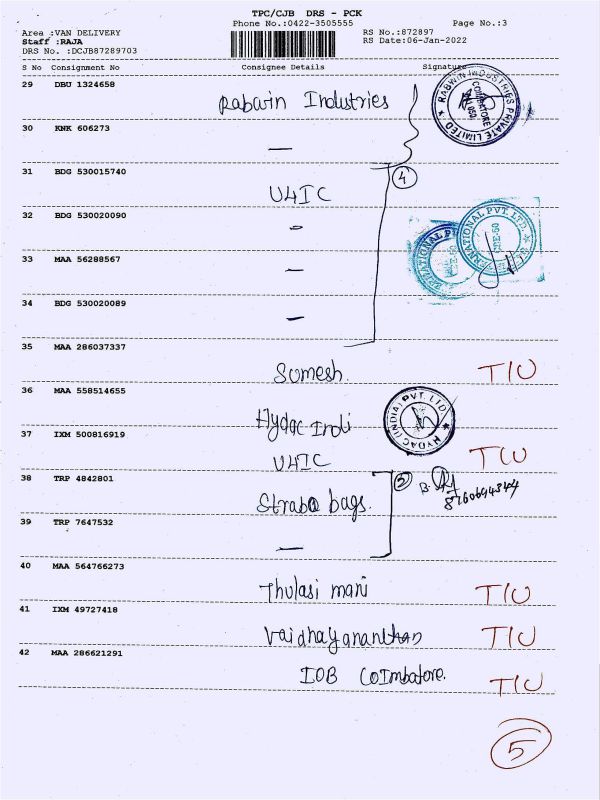 TPC/CJB DRS - PCK
Phone No.:0422-3505555
Page No.:3
Area :VAN DELIVERY
RS No.:872897
Staff :RAJA
RS Date:06-Jan-2022
DRS No. :DCJB87289703
S No Consignment No Consignee Details Signature
29 DBU 1324658 Rabwin Industries
RABWIN INDUSTRIES PRIVATE LIMITED
COIMBATORE
30 KNK 606273 —
31 BDG 530015740 U4IC 4
32 BDG 530020090 —
33 MAA 56288567 —
34 BDG 530020089 —
35 MAA 286037337 Somesh. T/U
36 MAA 558514655 Hydac Indi
HYDAC (INDIA) PVT. LTD.
37 IXM 500816919 U4IC T/U
38 TRP 4842801 Strabo bags.
39 TRP 7647532 —
40 MAA 564766273 Thulasi mani T/U
41 IXM 49727418 Vaidhayananthan T/U
42 MAA 286621291 IOB Coimbatore. T/U
5